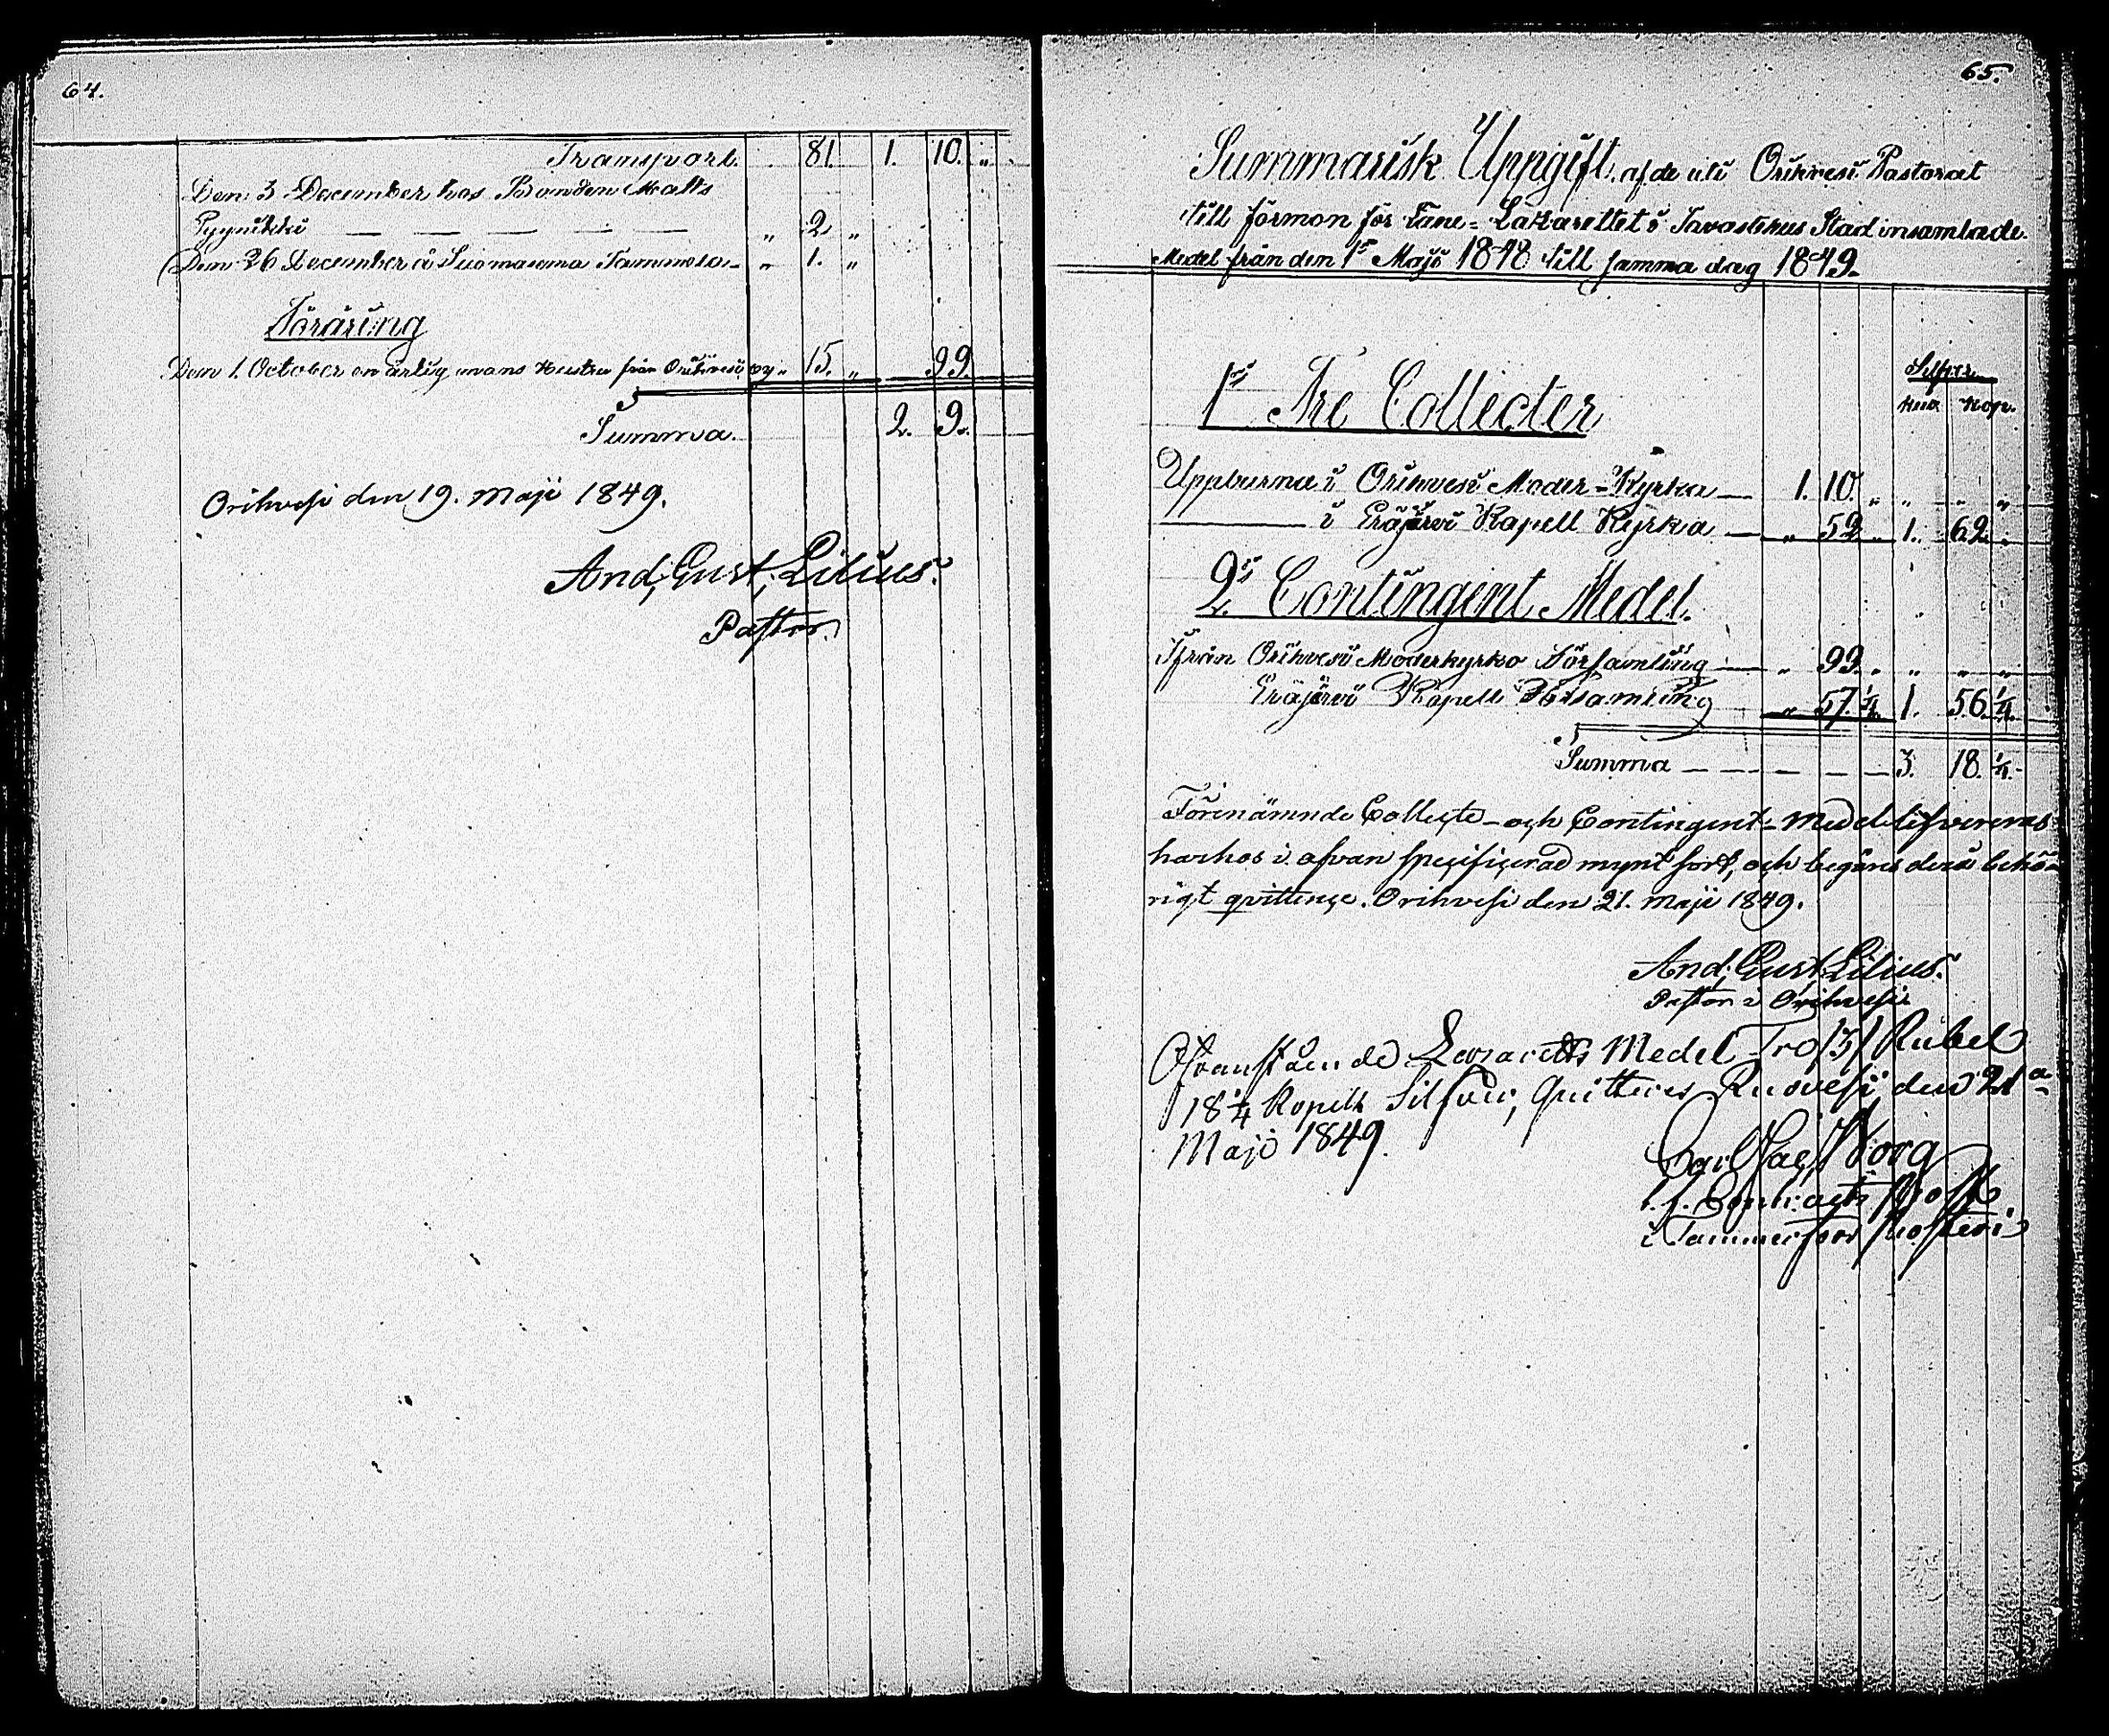 64.
Transport. 81. 1. 10. "
Den 3 December hos Bonden Matts
Pyynikki — — — — — " 2. "
Den 26 December å Suomasema Tammela - " 1. "
Föräring
Den 1. October en ärlig mans Hustru från Orihvesi by " 15. " 99
Summa. 2. 9.
Orihvesi den 19. Maji 1849.
And; Gust; Lilius.
Pastor.
65.
Summarisk Uppgift, af de uti Orihvesi Pastorat
till förmon för Läne-Lazarettet i Tavastehus Stad insamlade
Medel från den 1s Maji 1848 till samma dag 1849.
Silfver
Rub Kop.
1s Tre Collecter
Uppburna i Orihvesi Moder-Kyrka — 1. 10. " " " "
——— i Eräjärvi Kapell Kyrka — " 52 " 1. 62. "
2s Contingent Medel.
Ifrån Orihvesi Moderkyrko Församling — " 99. " " " "
Eräjärvi Kapell Församling " 57. 1/4. 1. 56. 1/4.
Summa — — — — — 3. 18. 1/4.
Förenämnde Collecte- och Contingent-Medel lefvereras
härhos i ofvan specificerad mynt sort, och begäres derå behö-
rigt qvittence. Orihvesi den 21. Maji 1849.
And; Gust; Lilius.
Pastor i Orihvesi
Ofvanstående Lazaretts Medel Tre /3/ Rubel
18 1/4 Kopek Silfver, quitteras Ruovesi, den 21a
Maji 1849.
Carl Borg
t. f. Contracts Prost
i Tammerfors Prosteri